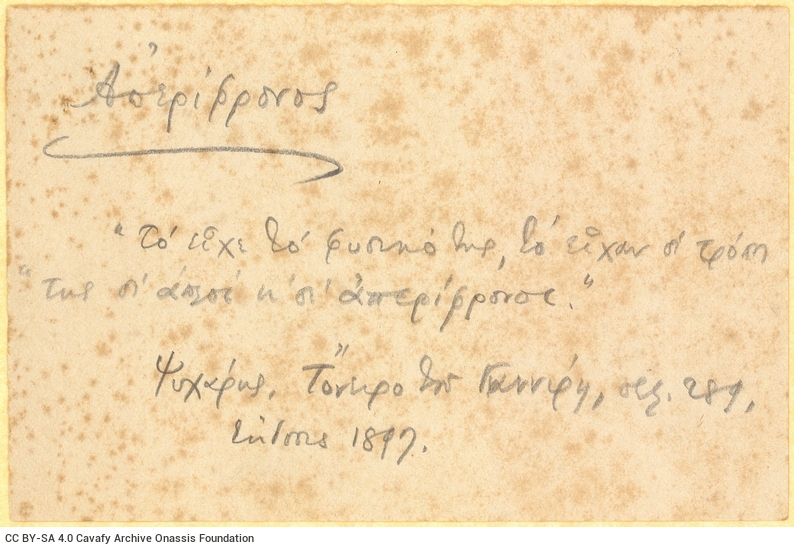 Ἀπερίφρονος
"Τό εἶχε τό φυσικό της, τό εἶχαν οἱ τρόποι
"της οἱ ἁπλοί κ' οἱ ἀπερίφρονοι."
Ψυχάρης, Τὄνειρο τοῦ Γιαννίρη, σελ. 289,
ἔκδοσις 1897.
CC BY-SA 4.0 Cavafy Archive Onassis Foundation